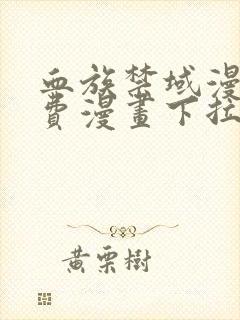 血族禁域漫
費漫畫下拉
黃栗樹